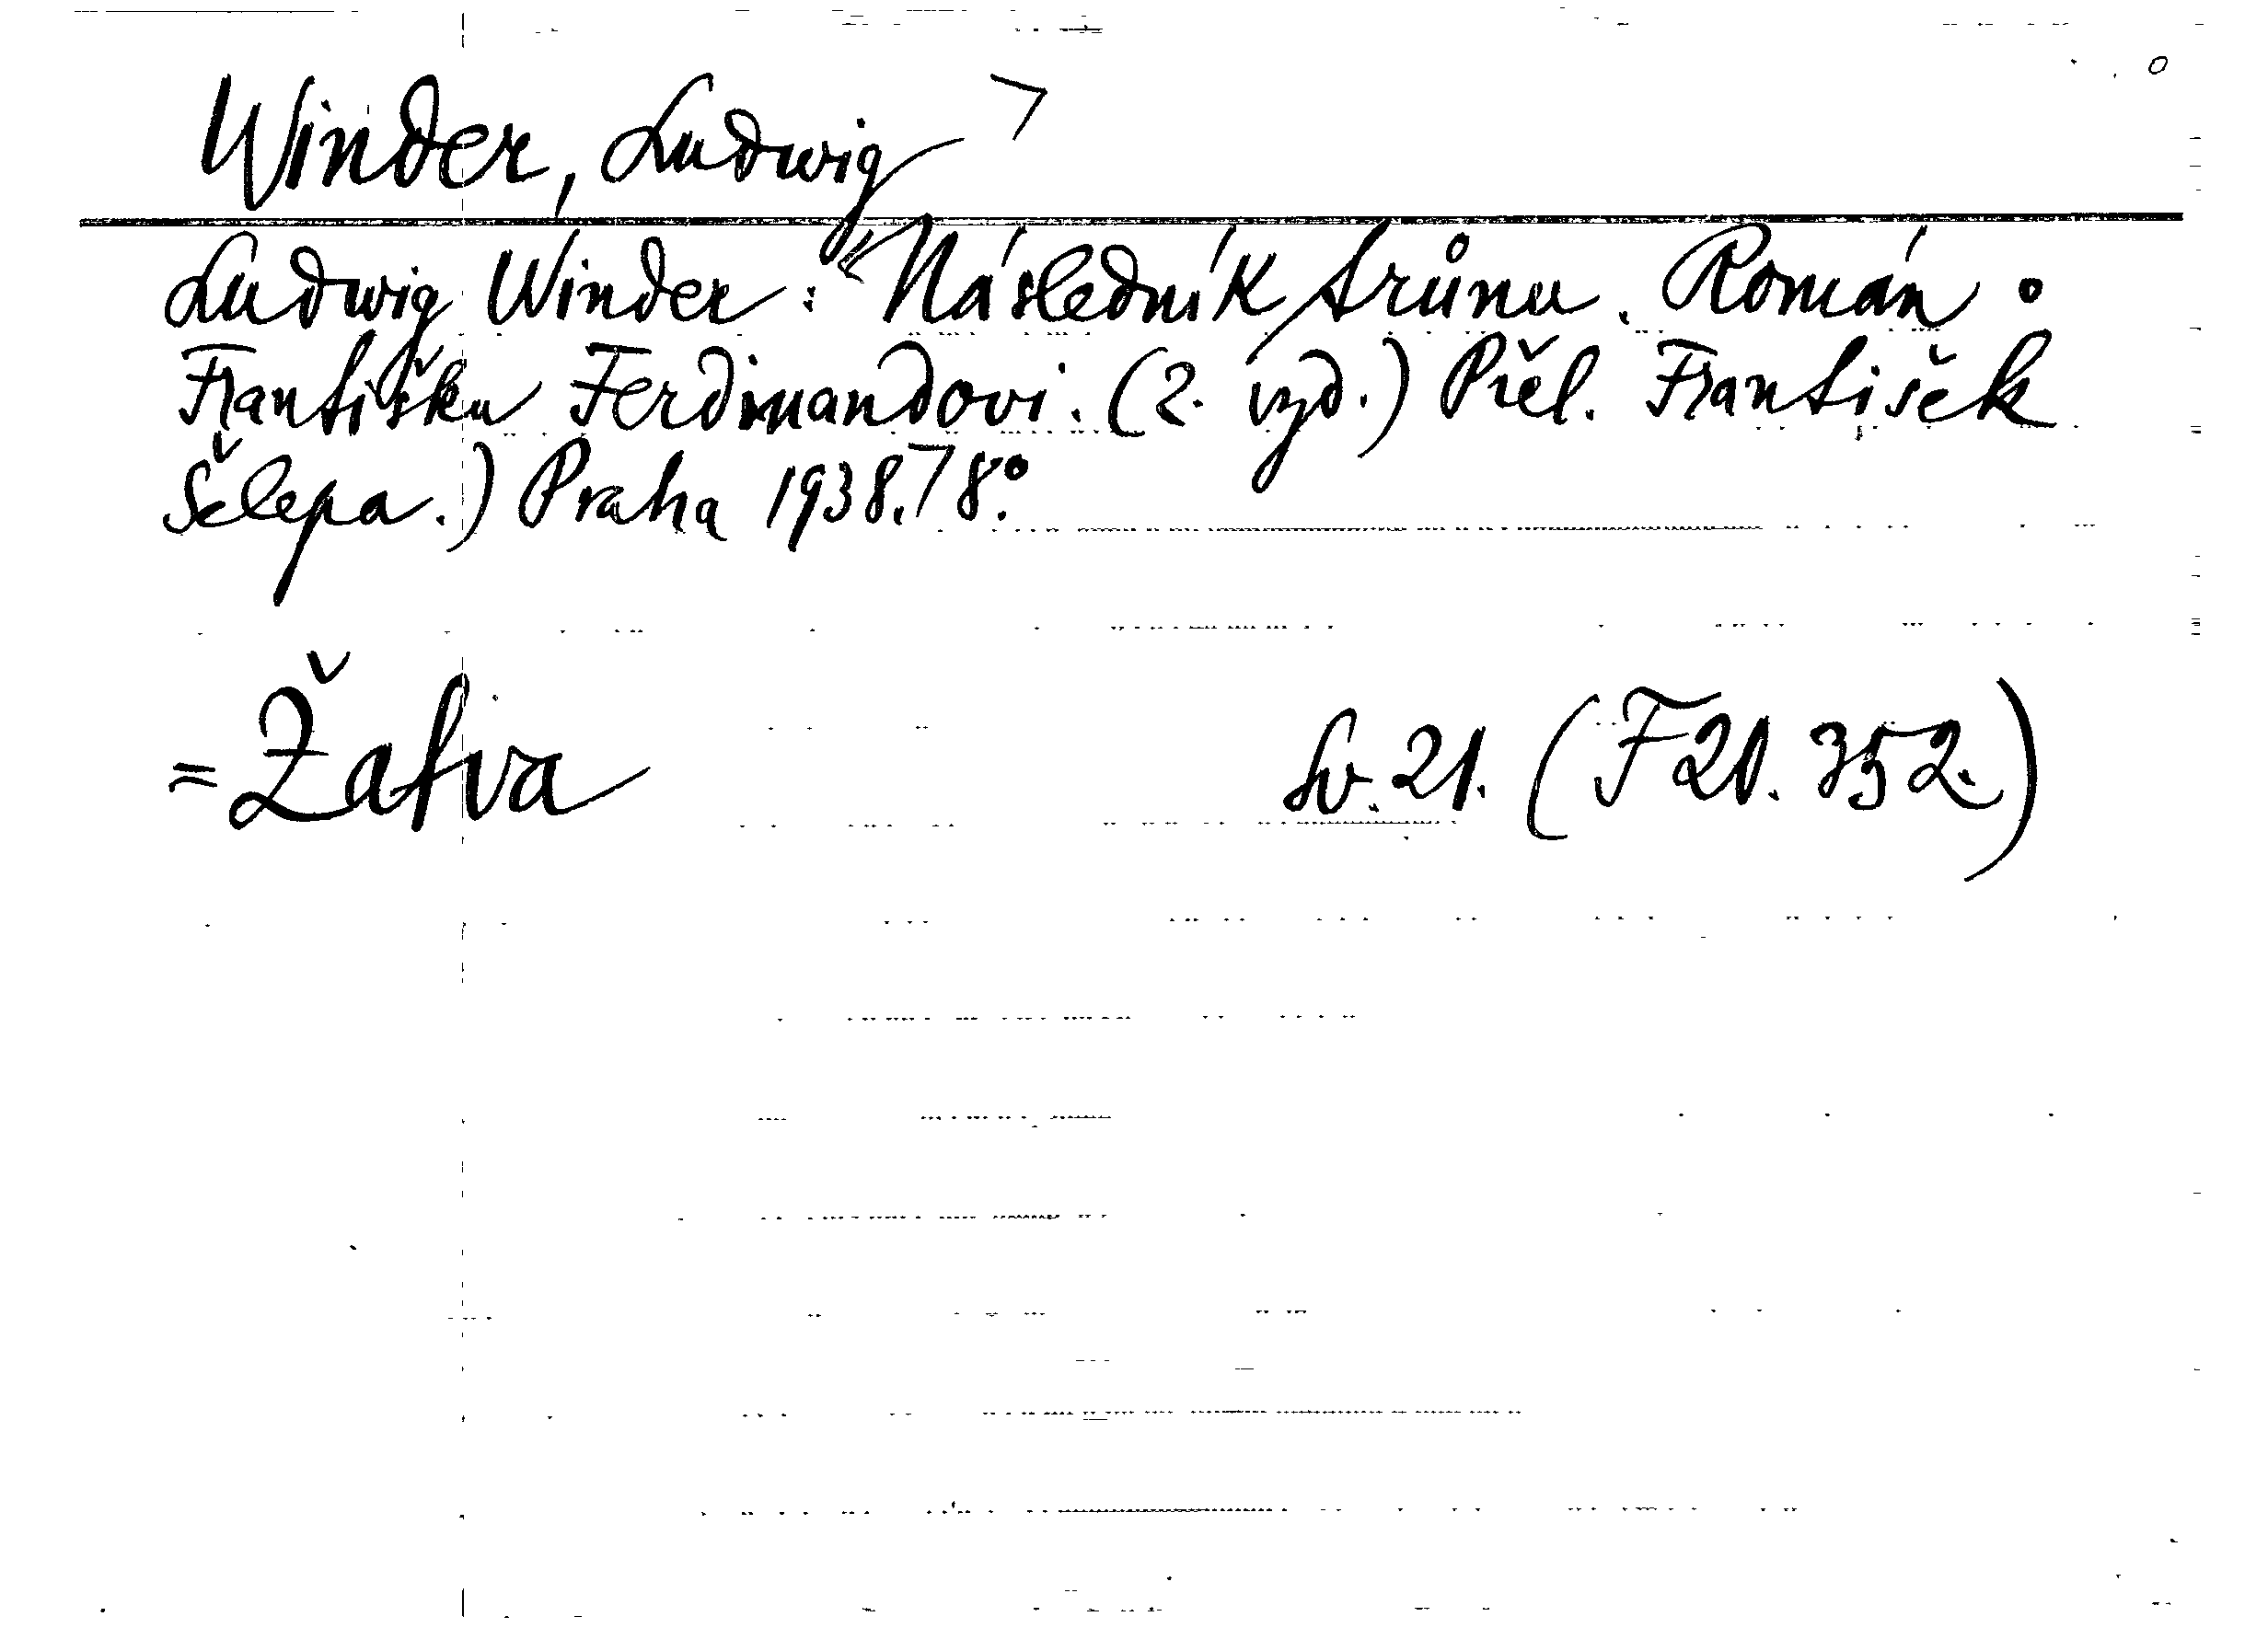 Winder, Ludwig
Ludwig Winder: Následník trůnu. Román o
Františku Ferdinandovi. (2. vyd.) Přel. František
Šelepa.) Praha 1938. 8°.
= Žatva sv. 21. (F 20.352.)